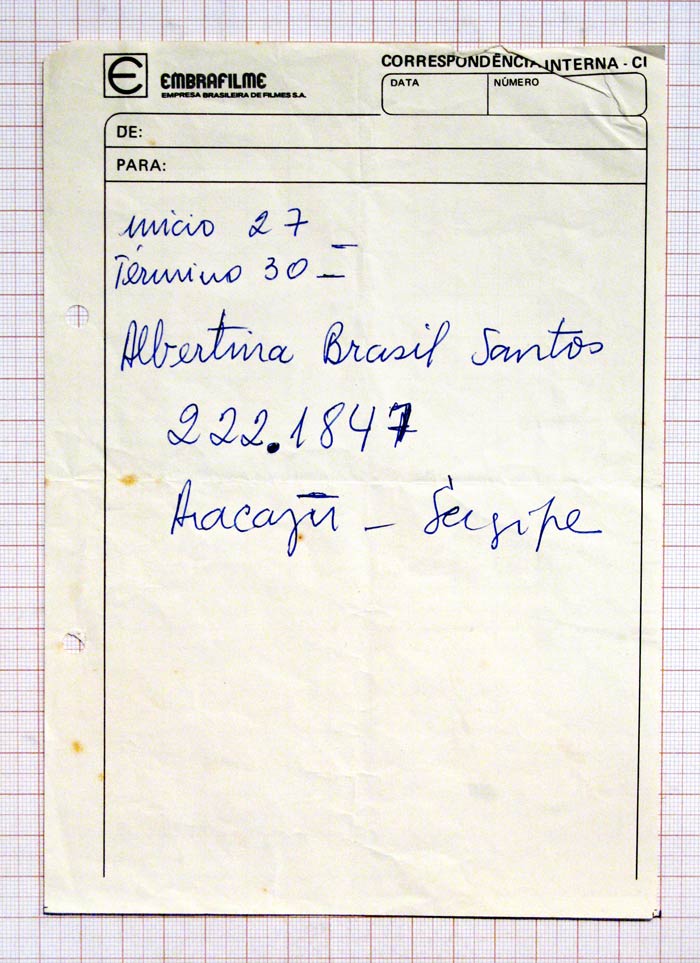 EMBRAFILME
EMPRESA BRASILEIRA DE FILMES S.A.
CORRESPONDÊNCIA INTERNA - CI
DATA NÚMERO
DE:
PARA:
início 27
Término 30
Albertina Brasil Santos
222.1847
Aracajú - Sergipe